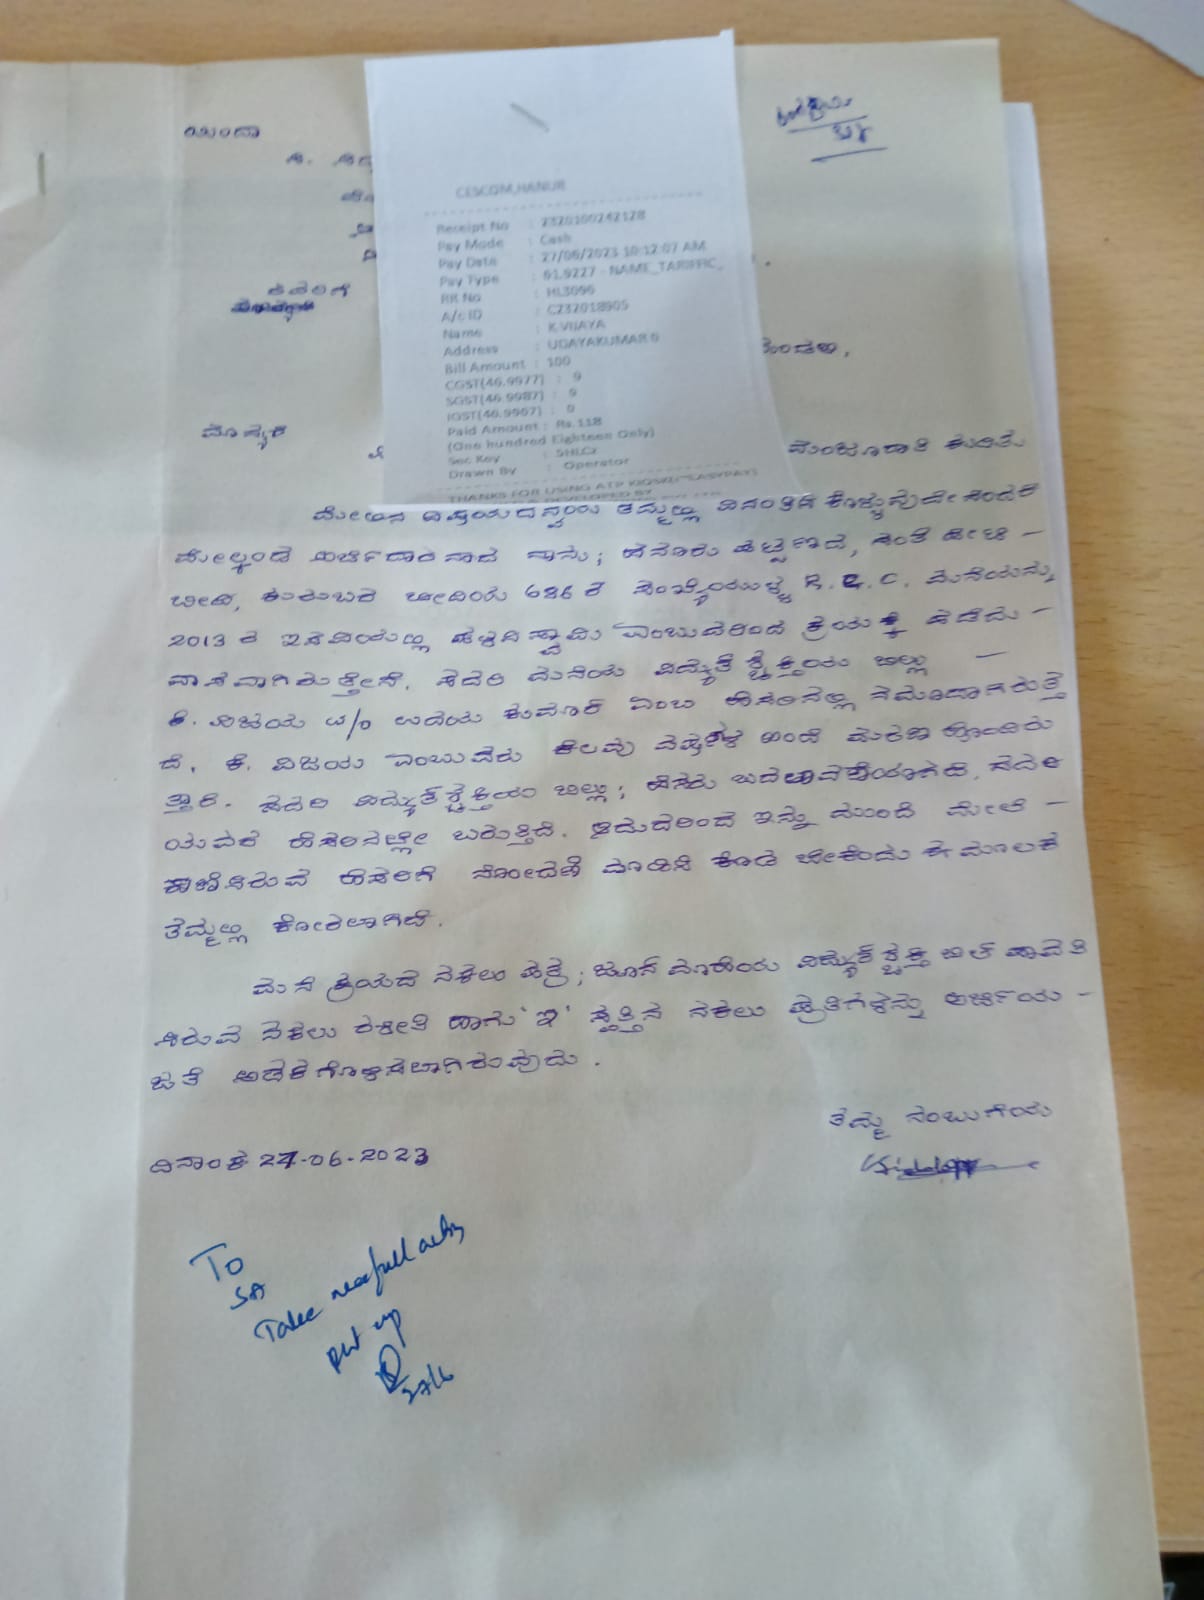 ಯಿಂದಾ
ಸಿ.
ರವರಿಗೆ
CESCOM,HANUR
Receipt No : 2320100242128
Pay Mode : Cash
Pay Date : 27/06/2023 10:12:07 AM
Pay Type : 61.9227 - NAME_TARIFFIC_
RR No : HL3096
A/c ID : C232018905
Name : K.VIJAYA
Address : UDAYAKUMAR
Bill Amount : 100
CGST(46.9977) : 9
SGST(46.9987) : 9
IGST(46.9907) : 0
Paid Amount : Rs.118
(One hundred Eighteen Only)
Sec Key : SHLCr
Drawn By : Operator
THANKS FOR USING ATP KIOSK "EASYPAY"
DEVELOPED BY
ಮಾನ್ಯರೆ
ಕುರಿತು
ಮೇಲಿನ ವಿಷಯದನ್ವಯ ತಮ್ಮಲ್ಲಿ ವಿನಂತಿಸಿ ಕೊಳ್ಳುವುದೇನೆಂದರೆ
ಮೇಲ್ಕಂಡ ಅರ್ಜಿದಾರನಾದ ನಾನು; ಹನೂರು ಪಟ್ಟಣದ, ಸಂತೆ ಪೇಟೆ -
ಬೀದಿ, ಕುರುಬರ ಬೀದಿಯ 686 ರ ಸಂಖ್ಯೆಯುಳ್ಳ R.C.C. ಮನೆಯನ್ನು
2013 ರ ಇಸವಿಯಲ್ಲಿ ಪಳನಿಸ್ವಾಮಿ ಎಂಬುವರಿಂದ ಕ್ರಯಕ್ಕೆ ಪಡೆದು -
ವಾಸವಾಗಿರುತ್ತೇನೆ. ಸದರಿ ಮನೆಯ ವಿದ್ಯುತ್ ಬಿಲ್ಲು -
ಕೆ. ವಿಜಯ w/o ಉದಯ ಕುಮಾರ್ ಎಂಬ ಹೆಸರಿನಲ್ಲಿ ನಮೂದಾಗಿರುತ್ತ
ದೆ. ಕೆ. ವಿಜಯ ಎಂಬುವರು ಕೆಲವು ವರ್ಷಗಳ ಹಿಂದೆ ಮರಣ ಹೊಂದಿರು
ತ್ತಾರೆ. ಸದರಿ ಬಿಲ್ಲು; ಹೆಸರು ಬದಲಾವಣೆಯಾಗದೆ, ಸದರಿ
ಯವರ ಹೆಸರಿನಲ್ಲೇ ಬರುತ್ತಿದೆ. ಆದುದರಿಂದ ಇನ್ನು ಮುಂದೆ ಮೇಲೆ -
ಕಾಣಿಸಿರುವ ಹೆಸರಿಗೆ ನೋಂದಣಿ ಮಾಡಿಸಿ ಕೊಡ ಬೇಕೆಂದು ಈ ಮೂಲಕ
ತಮ್ಮಲ್ಲಿ ಕೋರಲಾಗಿದೆ.
ಮನೆ ಕ್ರಯದ ನಕಲು ಪತ್ರ; ಜೂನ್ ಮಾಹೆಯ ಬಿಲ್ ಪಾವತಿ
ಸಿರುವ ನಕಲು ರಶೀತಿ ಹಾಗು 'ಇ' ಸ್ವತ್ತಿನ ನಕಲು ಪ್ರತಿಗಳನ್ನು ಅರ್ಜಿಯ -
ಜತೆ ಅಡಕಗೊಳಿಸಲಾಗಿರುವುದು.
ತಮ್ಮ ನಂಬುಗೆಯ
ದಿನಾಂಕ 27-06-2023
To
SA
Take needfull action
put up
27/6